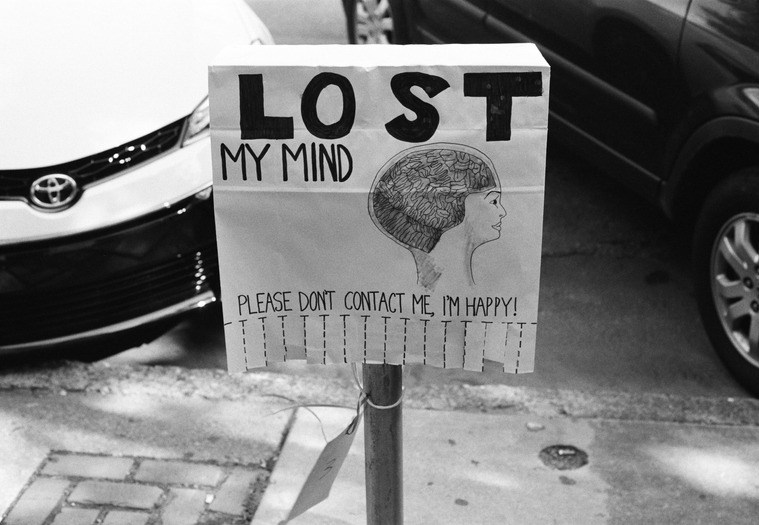 LOST
MY MIND
PLEASE DON'T CONTACT ME, I'M HAPPY!